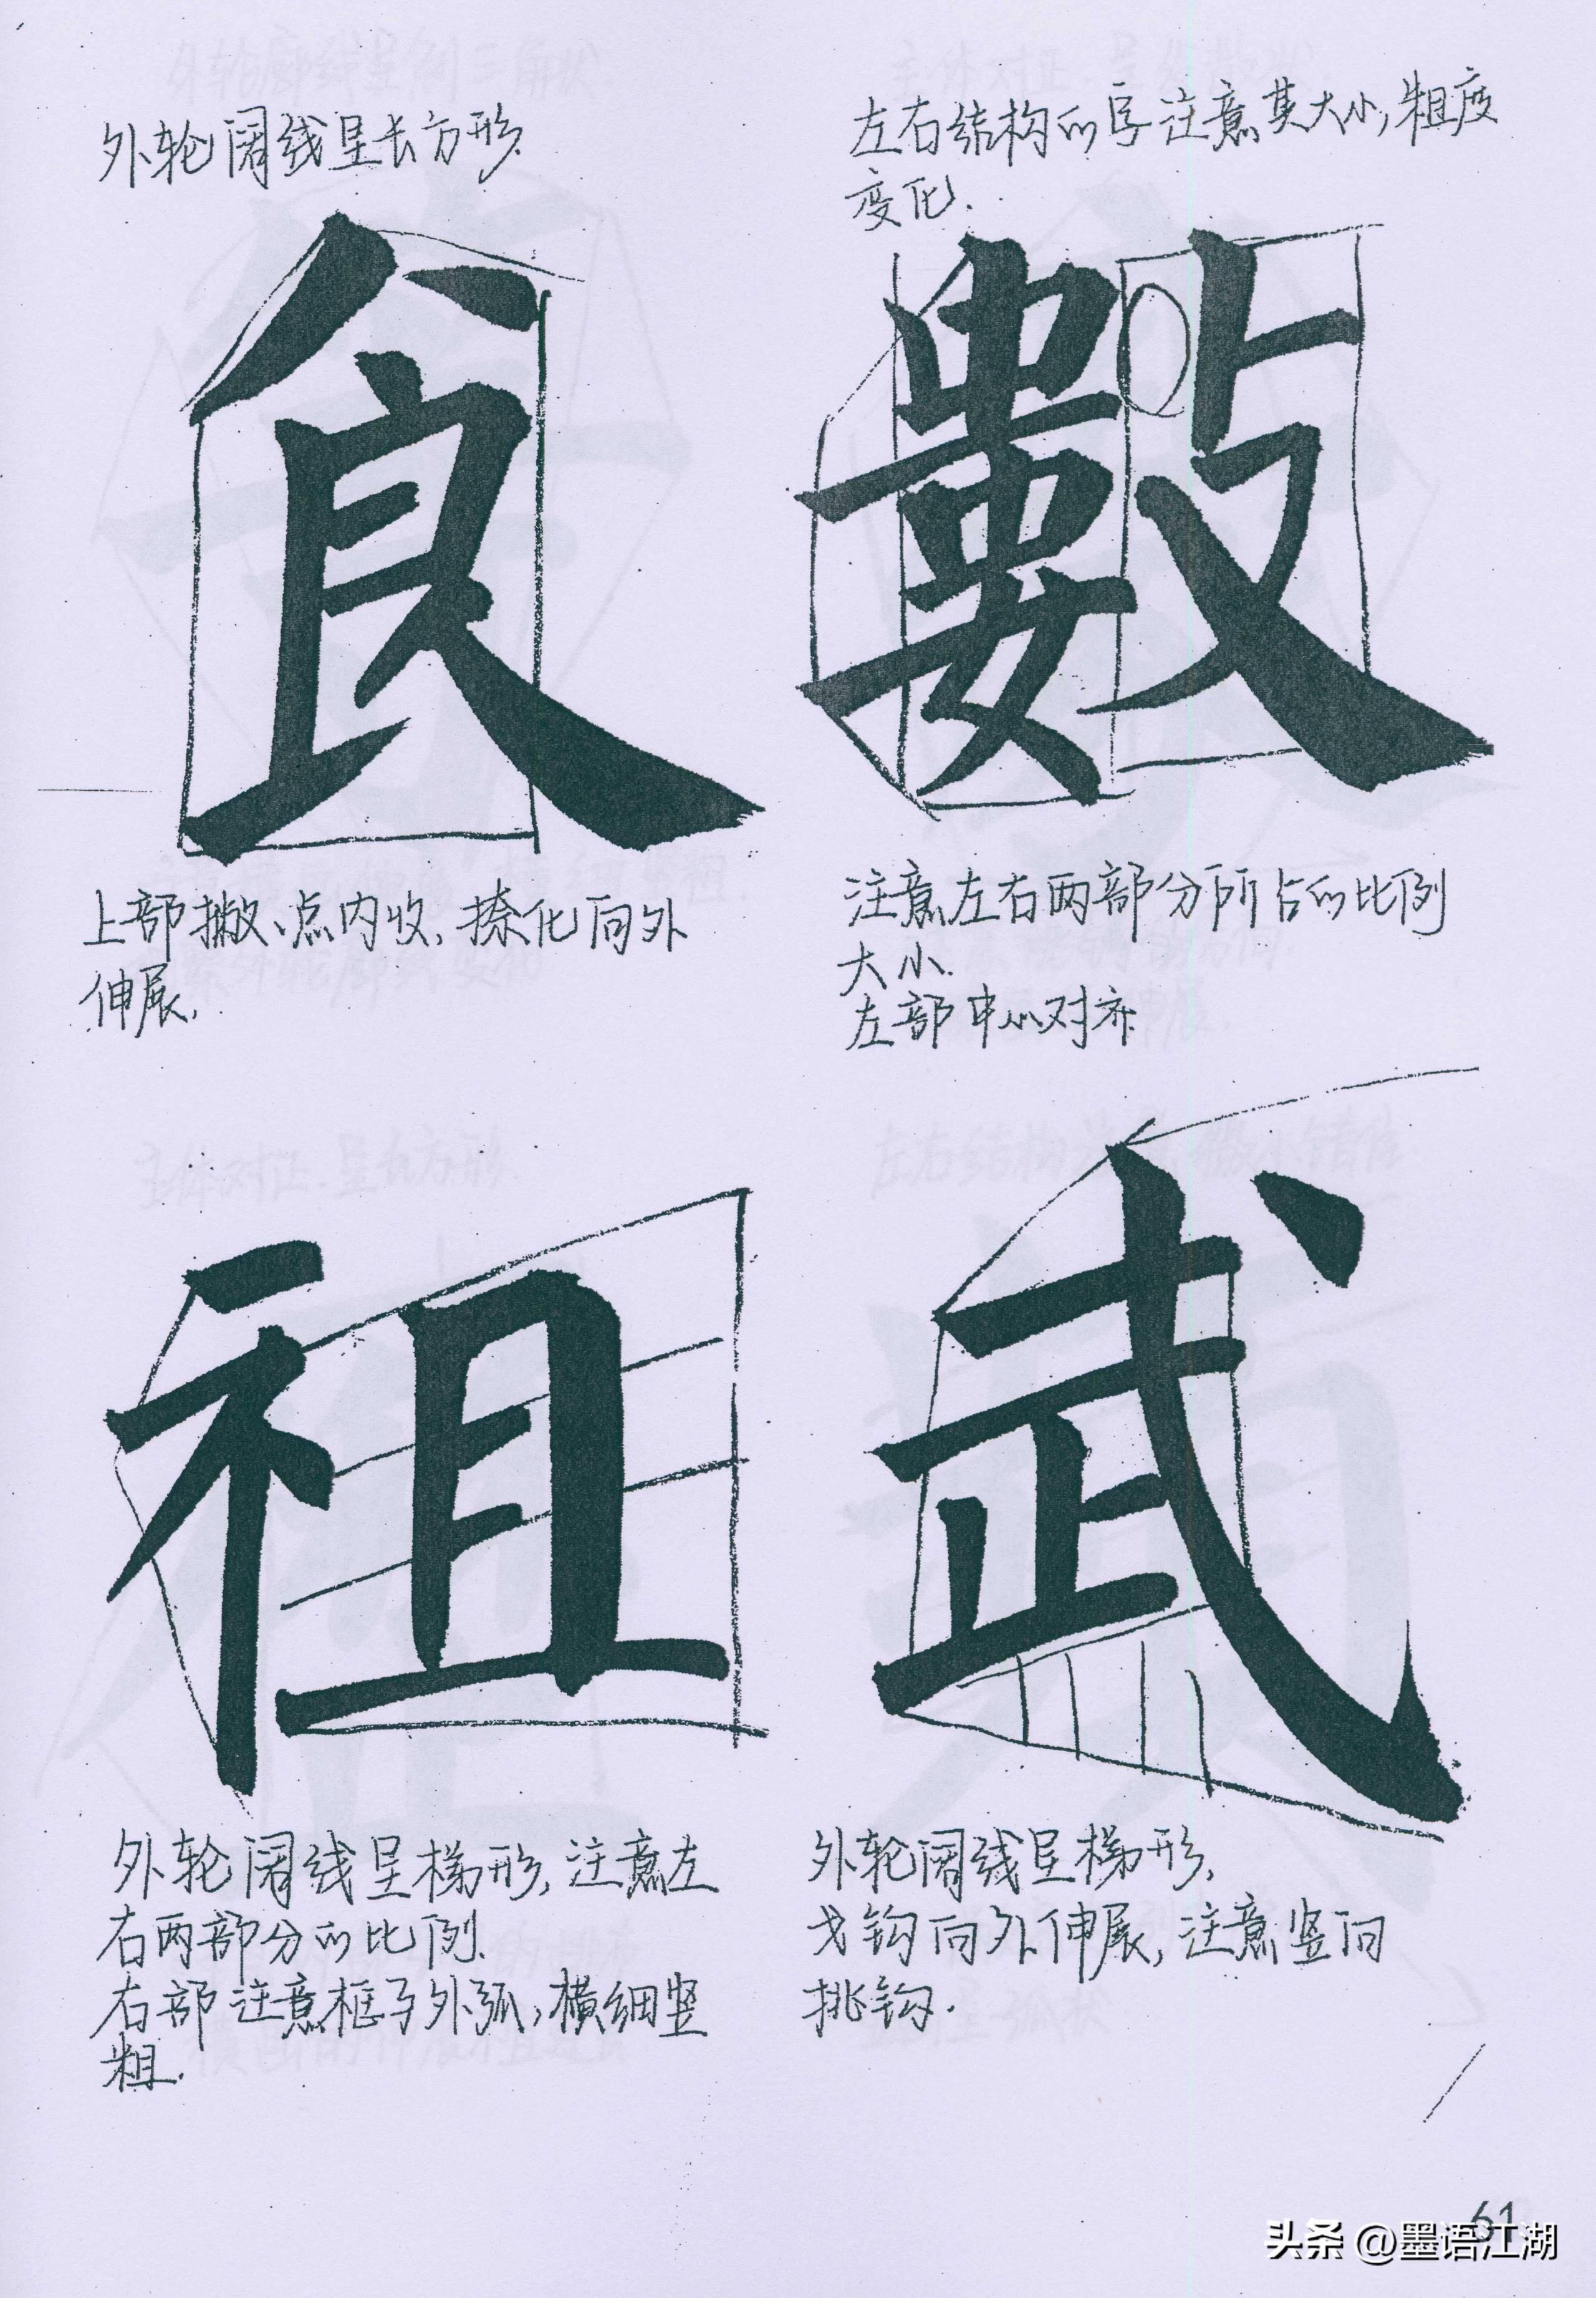 外轮阔线呈长方形.
食
上部撇、点内收,捺化向外
伸展.
左右结构的字注意其大小,粗度
变化.
數
注意左右两部分所占的比例
大小.
左部中心对齐
祖
外轮阔线呈梯形,注意左
右两部分的比例.
右部注意框子外弧,横细竖
粗.
武
外轮阔线呈梯形,
戈钩向外伸展,注意竖向
挑钩.
61
头条 @墨语江湖